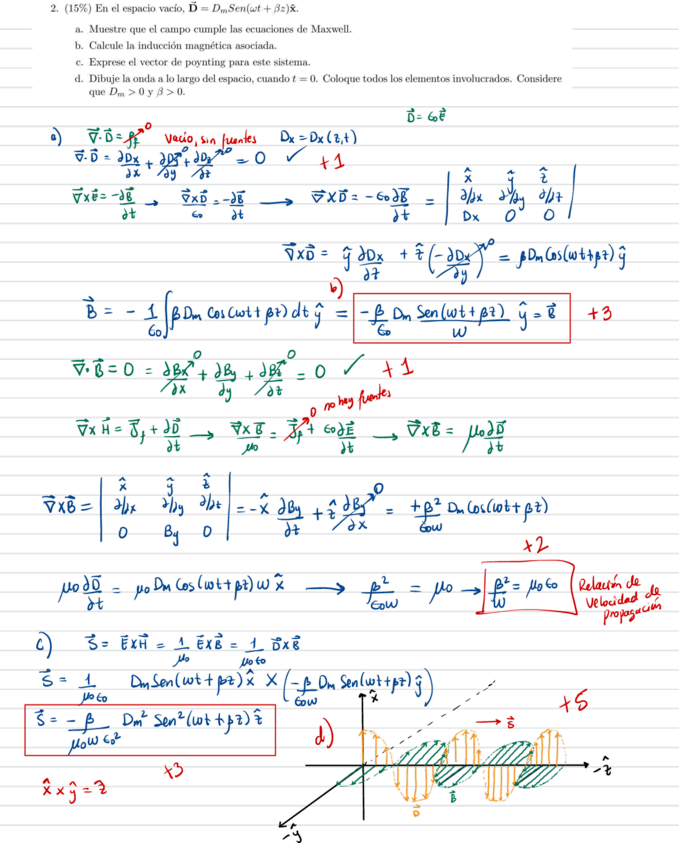 2. (15%) En el espacio vacío, D⃗ = D_m Sen(ωt + βz)x̂.
a. Muestre que el campo cumple las ecuaciones de Maxwell.
b. Calcule la inducción magnética asociada.
c. Exprese el vector de poynting para este sistema.
d. Dibuje la onda a lo largo del espacio, cuando t = 0. Coloque todos los elementos involucrados. Considere
que D_m > 0 y β > 0.
D⃗ = ϵ₀E⃗
a) ∇⃗·D⃗ = ρf 0 vacío, sin fuentes Dx = Dx(z,t)
∇⃗·D⃗ = ∂Dx/∂x + ∂Dy/∂y 0 + ∂Dz/∂z 0 = 0 ✓ +1
∇⃗×E⃗ = -∂B⃗/∂t → ∇⃗×D⃗/ϵ₀ = -∂B⃗/∂t → ∇⃗×D⃗ = -ϵ₀ ∂B⃗/∂t = | x̂ ŷ ẑ | ∂/∂x ∂/∂y ∂/∂z | Dx 0 0 |
∇⃗×D⃗ = ŷ ∂Dx/∂z + ẑ (-∂Dx/∂y) 0 = βDm Cos(ωt+βz) ŷ
b)
B⃗ = - 1/ϵ₀ ∫ βDm Cos(ωt+βz) dt ŷ = -β/ϵ₀ Dm Sen(ωt+βz)/ω ŷ = B⃗ +3
∇⃗·B⃗ = 0 = ∂Bx/∂x 0 + ∂By/∂y + ∂Bz/∂z 0 = 0 ✓ +1
∇⃗×H⃗ = J⃗f + ∂D⃗/∂t → ∇⃗×B⃗/μ₀ = J⃗f 0 no hay fuentes + ϵ₀ ∂E⃗/∂t → ∇⃗×B⃗ = μ₀ ∂D⃗/∂t
∇⃗×B⃗ = | x̂ ŷ ẑ | ∂/∂x ∂/∂y ∂/∂z | 0 By 0 | = -x̂ ∂By/∂z + ẑ ∂By/∂x 0 = +β²/ϵ₀ω Dm Cos(ωt+βz)
+2
μ₀ ∂D⃗/∂t = μ₀ Dm Cos(ωt+βz) ω x̂ → β²/ϵ₀ω = μ₀ → β²/ω = μ₀ϵ₀ Relación de velocidad de propagación
c) S⃗ = E⃗×H⃗ = 1/μ₀ E⃗×B⃗ = 1/μ₀ϵ₀ D⃗×B⃗
S⃗ = 1/μ₀ϵ₀ Dm Sen(ωt+βz) x̂ × (-β/ϵ₀ω Dm Sen(ωt+βz) ŷ)
S⃗ = -β/μ₀ωϵ₀² Dm² Sen²(ωt+βz) ẑ
+3
x̂ × ŷ = z
d) +5
x̂
S⃗
-ẑ
B⃗
D⃗
-ŷ